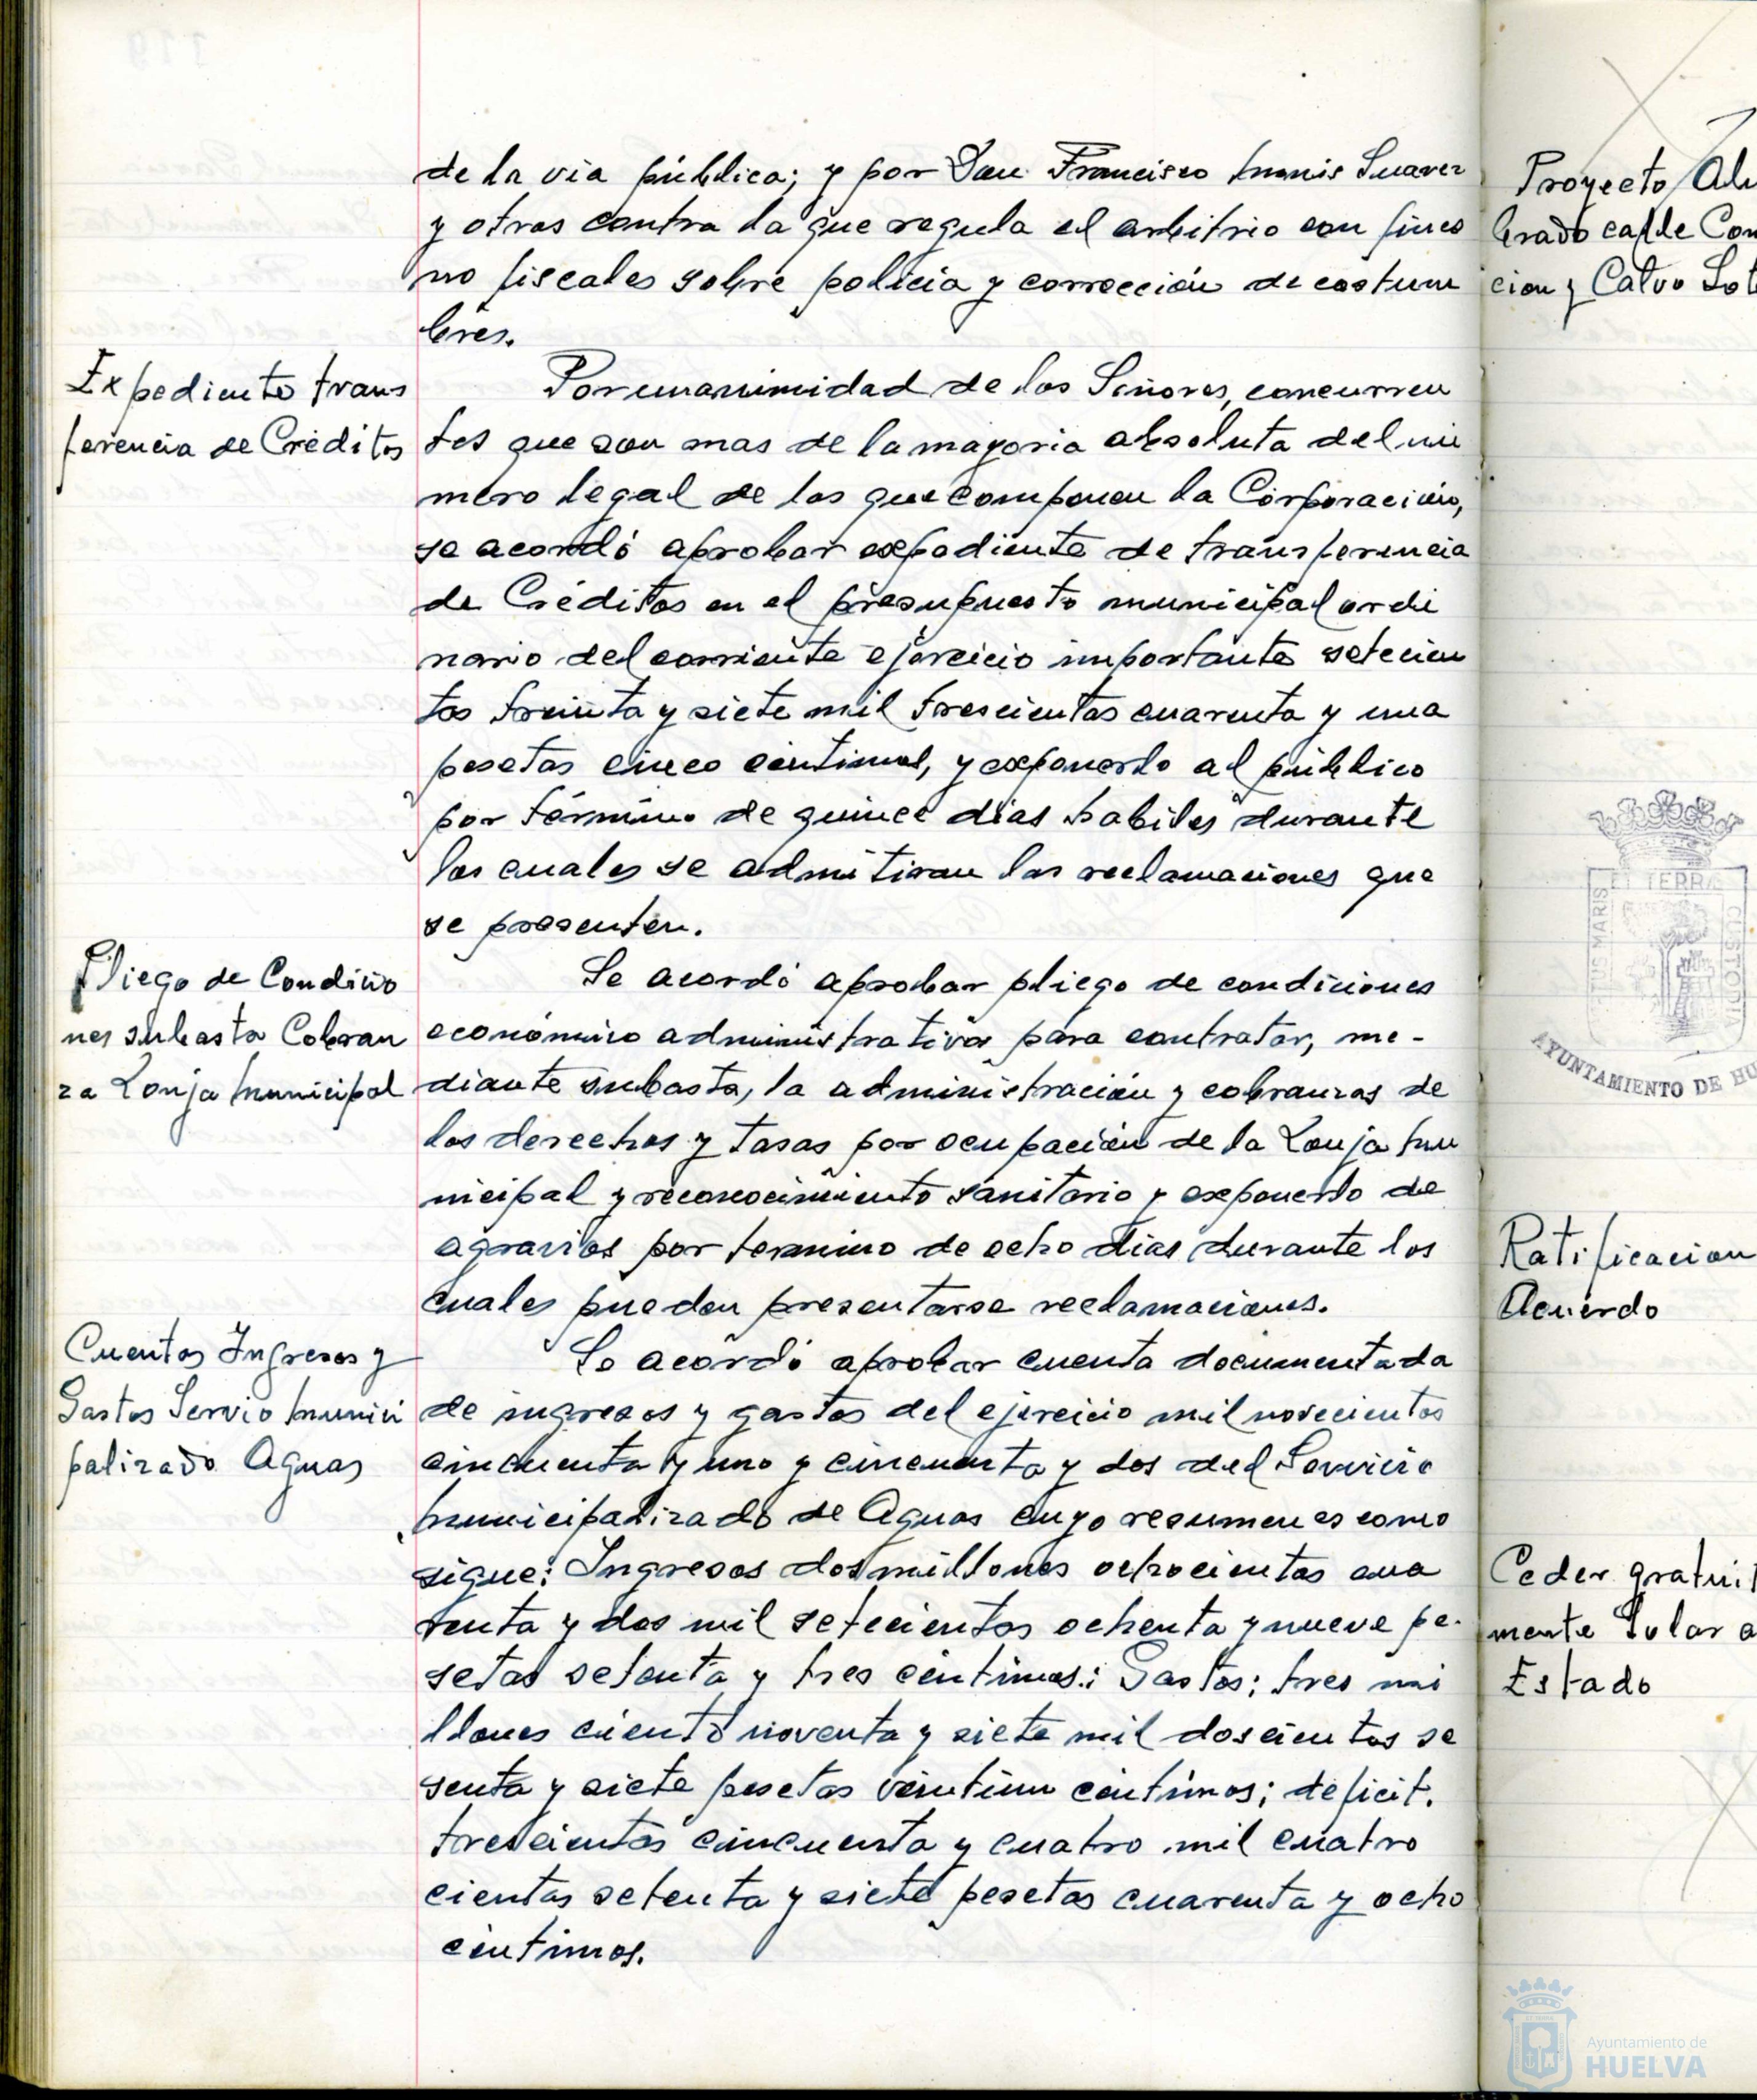 de la via pública; y por Don Francisco Muñis Suarez
y otros contra la que regula el arbitrio con fines
no fiscales sobre policia y corrección de costum
bres.
Expediente trans
ferencia de Créditos
Por unanimidad de los Señores, concurren
tes que son mas de la mayoria absoluta del nú
mero legal de los que componen la Corporación,
se acordó aprobar expediente de transferencia
de Créditos en el presupuesto municipal ordi
nario del corriente ejercicio importante setecien
tos treinta y siete mil trescientas cuarenta y una
pesetas cinco céntimos, y exponerlo al público
por término de quince dias habiles durante
los cuales se admitiran las reclamaciones que
se presenten.
Pliego de Condicio
nes subasta Cobran
za Lonja Municipal
Se acordó aprobar pliego de condiciones
económico administrativas para contratar, me-
diante subasta, la administración y cobranzas de
los derechos y tasas por ocupación de la Lonja Mu
nicipal y reconocimiento sanitario y exponerlo de
agravios por termino de ocho dias durante los
cuales pueden presentarse reclamaciones.
Cuentas Ingresos y
Gastos Servio Munici
palizado Aguas
Se acordó aprobar cuenta documentada
de ingresos y gastos del ejercicio mil novecientos
cincuenta y uno y cincuenta y dos del Servicio
Municipalizado de Aguas cuyo resumen es como
sigue: Ingresos dos millones ochocientas cua
renta y dos mil setecientos ochenta y nueve pe-
setas setenta y tres céntimos: Gastos: tres mi
llones ciento noventa y siete mil doscientos se
senta y siete pesetas veintiun céntimos; deficit.
trescientos cincuenta y cuatro mil cuatro
cientas setenta y siete pesetas cuarenta y ocho
céntimos.
Proyecto Alu
brado calle Con
cion y Calvo Sot
ET TERRA
TUS MARIS
CUSTODIA
AYUNTAMIENTO DE HU
Ratificacion
Acuerdo
Ceder gratuit
mente Solar a
Estado
Ayuntamiento de
HUELVA